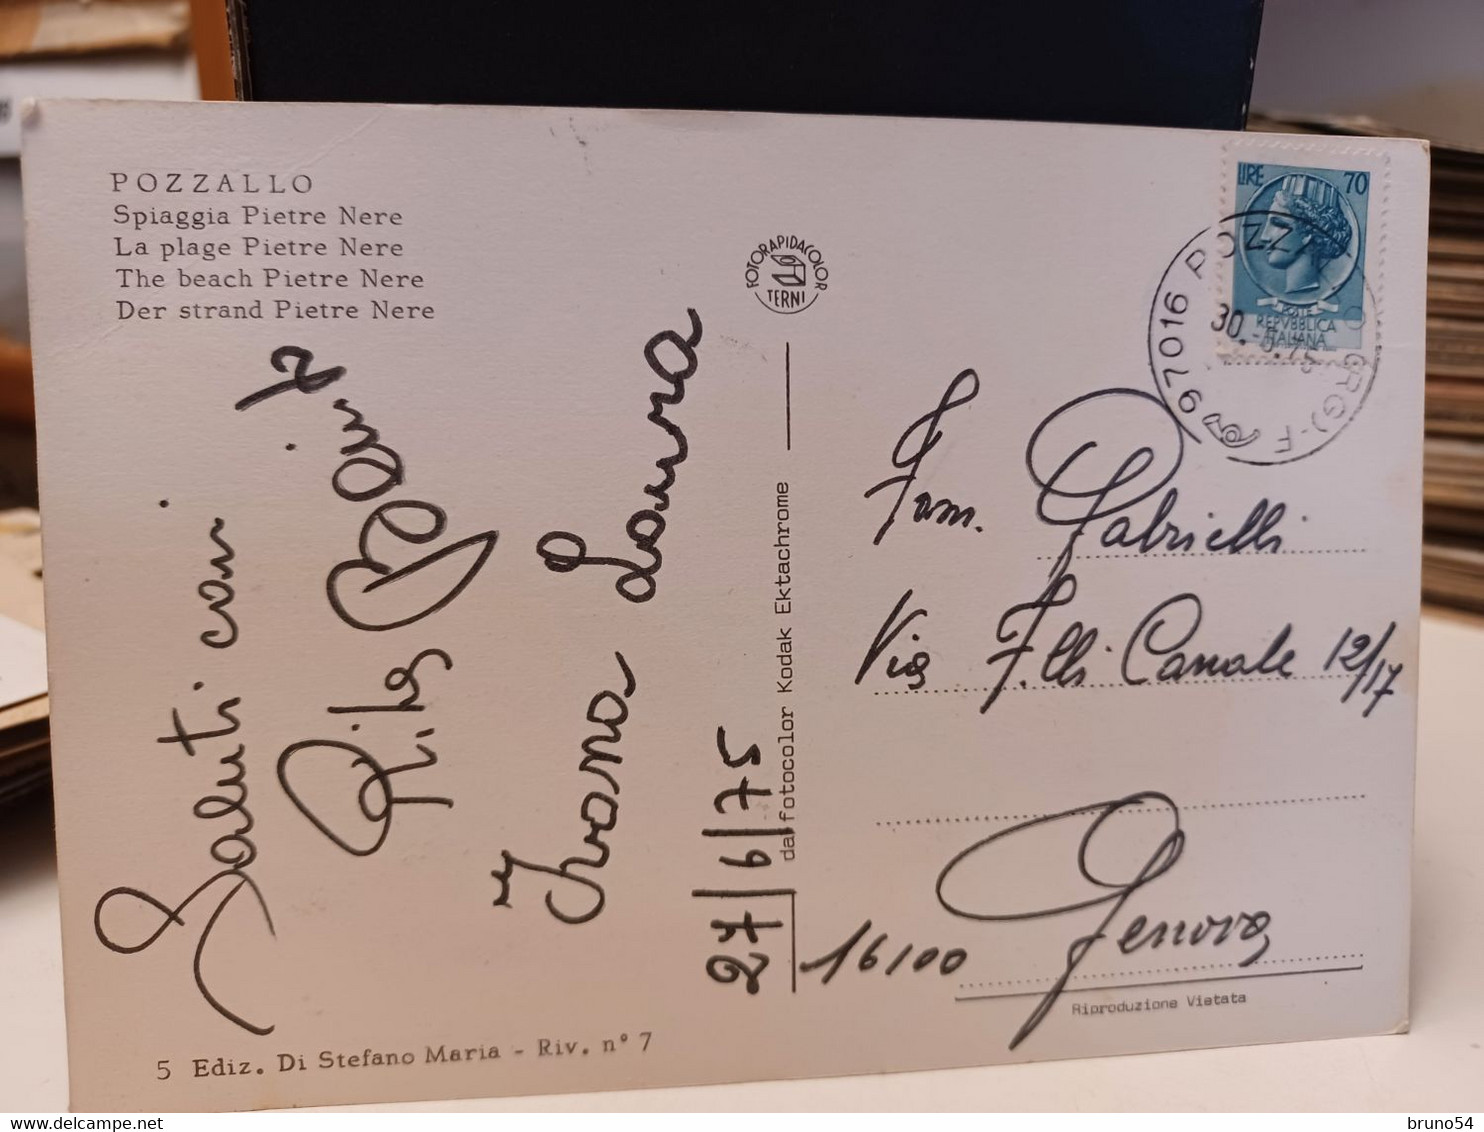 POZZALLO
Spiaggia Pietre Nere
La plage Pietre Nere
The beach Pietre Nere
Der strand Pietre Nere
FOTORAPIDACOLOR
TERNI
LIRE 70
POSTE
REPVBBLICA
ITALIANA
97016 POZZALLO (RG)-F
30.-6.75
Saluti cari
Ivana Laura
27/6/75
da fotocolor Kodak Ektachrome
Fam. Gabrielli
Via F.lli Canale 12/17
16100 Genova
Riproduzione Vietata
5 Ediz. Di Stefano Maria - Riv. n° 7
bruno54